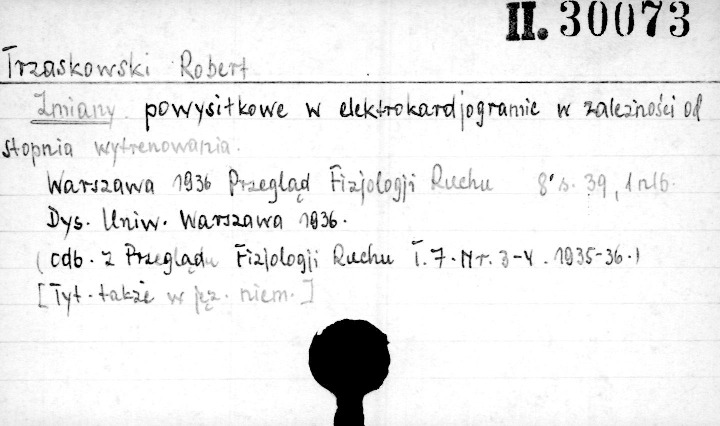 II. 30073
Trzaskowski Robert
Zmiany powysiłkowe w elektrokardjogramie w zależności od
stopnia wytrenowania.
Warszawa 1936 Przegląd Fizjologji Ruchu 8° s. 39, 1 nlb.
Dys. Uniw. Warszawa 1936.
(odb. z Przeglądu Fizjologji Ruchu T. 7. Nr. 3-4. 1935-36.)
[Tyt. także w jęz. niem.]